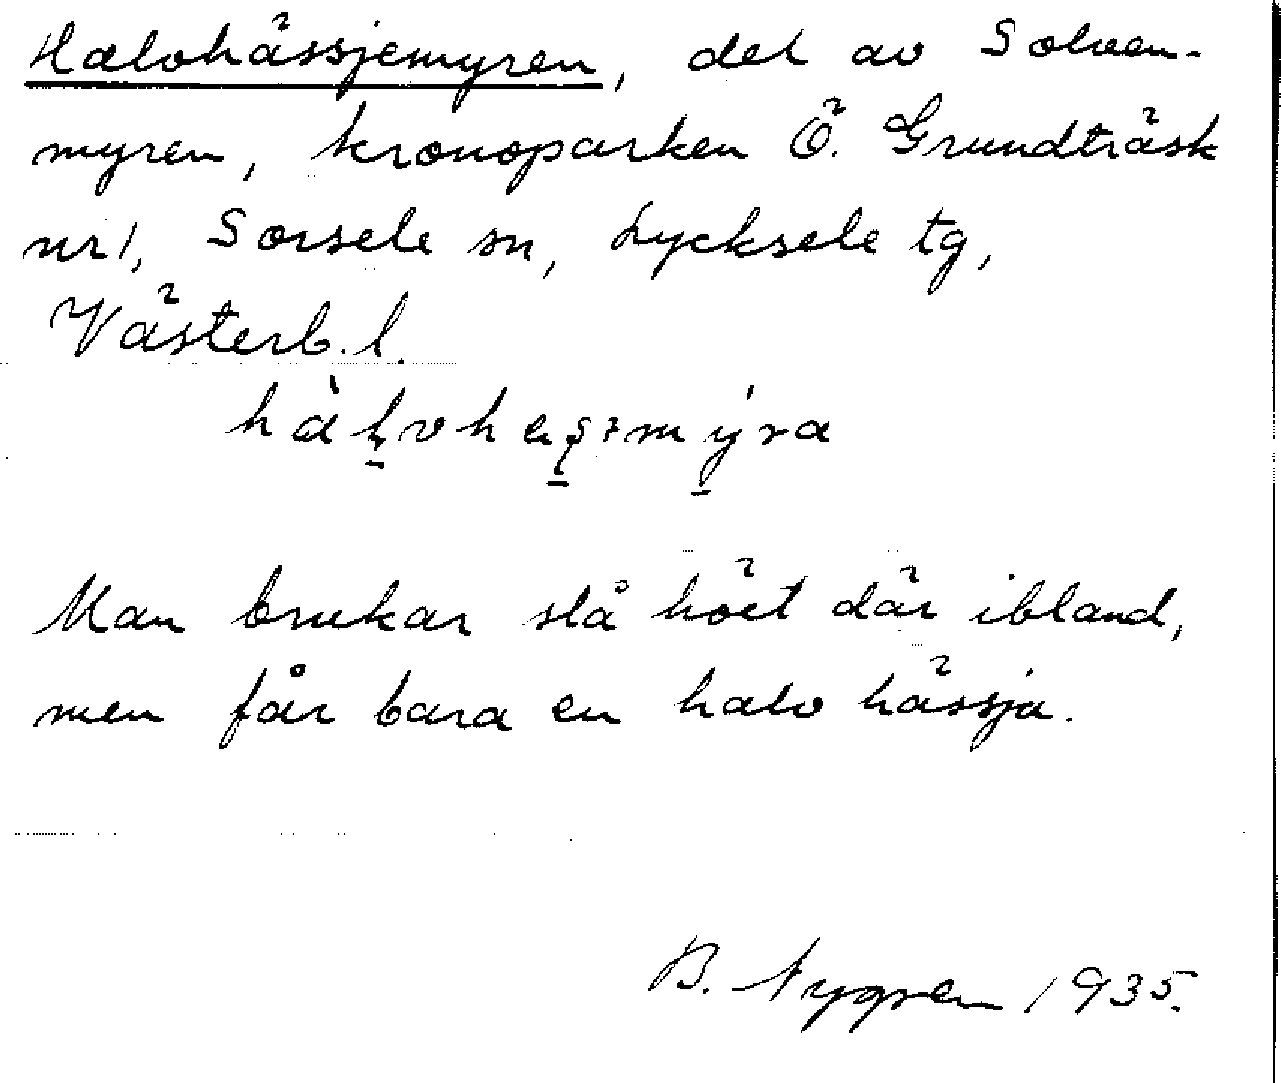 Halvhässjemyren, del av Solven-
myren, kronoparken Ö. Grundträsk
nr 1, Sorsele sn, Lycksele tg,
Västerb. l.
Man brukar slå höet där ibland,
men får bara en halv hässja.
B. Nygren 1935.